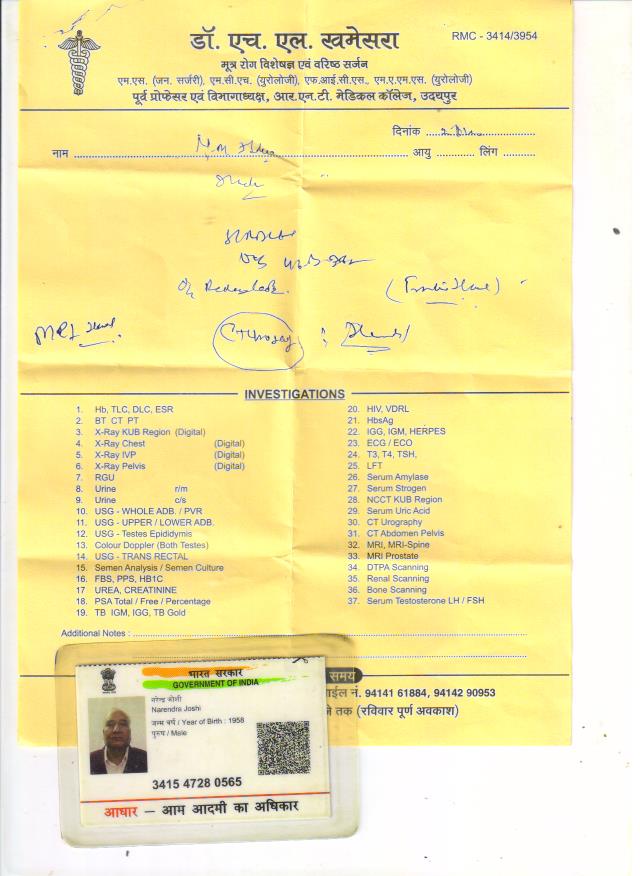 डॉ. एच. एल. खमेसरा
RMC - 3414/3954
मूत्र रोग विशेषज्ञ एवं वरिष्ठ सर्जन
एम.एस. (जन. सर्जरी), एम.सी.एच. (युरोलोजी), एफ.आई.सी.एस., एम.ए.एम.एस. (युरोलोजी)
पूर्व प्रोफेसर एवं विभागाध्यक्ष, आर.एन.टी. मेडिकल कॉलेज, उदयपुर
दिनांक
नाम आयु लिंग
MRI
CT Urography
INVESTIGATIONS
1. Hb, TLC, DLC, ESR
2. BT CT PT
3. X-Ray KUB Region (Digital)
4. X-Ray Chest (Digital)
5. X-Ray IVP (Digital)
6. X-Ray Pelvis (Digital)
7. RGU
8. Urine r/m
9. Urine c/s
10. USG - WHOLE ADB. / PVR
11. USG - UPPER / LOWER ADB.
12. USG - Testes Epididymis
13. Colour Doppler (Both Testes)
14. USG - TRANS RECTAL
15. Semen Analysis / Semen Culture
16. FBS, PPS, HB1C
17 UREA, CREATININE
18. PSA Total / Free / Percentage
19. TB IGM, IGG, TB Gold
20. HIV, VDRL
21. HbsAg
22. IGG, IGM, HERPES
23. ECG / ECO
24. T3, T4, TSH,
25. LFT
26. Serum Amylase
27. Serum Strogen
28. NCCT KUB Region
29. Serum Uric Acid
30. CT Urography
31. CT Abdomen Pelvis
32. MRI, MRI-Spine
33. MRI Prostate
34. DTPA Scanning
35. Renal Scanning
36. Bone Scanning
37. Serum Testosterone LH / FSH
Additional Notes :
समय
नं. 94141 61884, 94142 90953
तक (रविवार पूर्ण अवकाश)
भारत सरकार
GOVERNMENT OF INDIA
नरेन्द्र जोशी
Narendra Joshi
जन्म वर्ष / Year of Birth : 1958
पुरुष / Male
3415 4728 0565
आधार – आम आदमी का अधिकार